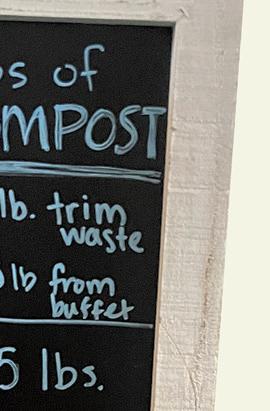 s of
MPOST
lb. trim
waste
lb from
buffet
5 lbs.